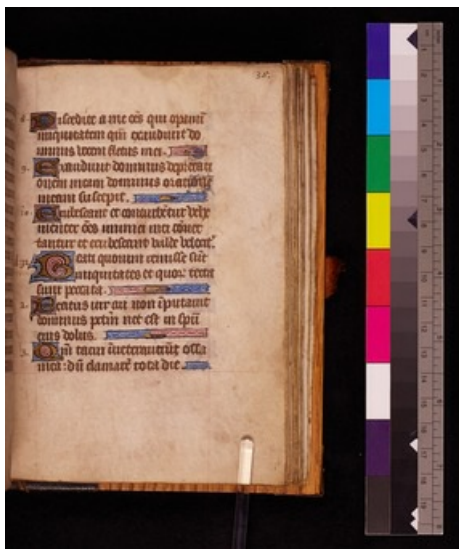 30.
Discedite a me oēs qui opamī
iniquitatem qm̄ exaudiuit do
minus vocem fletus mei.
Exaudiuit dominus deprecati
onem meam dominus orationē
meam suscepit.
Erubescant et conturbētur vehe
menter oēs inimici mei cōuer
tantur et erubescant valde velocit̄.
Beati quorum remisse sūt
iniquitates et quor tecta
sunt peccata.
2. Beatus uir cui non īputauit
dominus pctm̄ nec est in spū
eius dolus.
3. Qm̄ tacui īueterauerūt ossa
mea: dū clamarē tota die